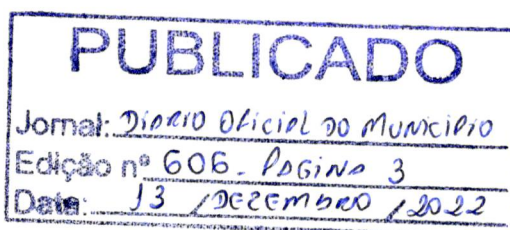 PUBLICADO
Jornal: DIARIO OFICIAL DO MUNICIPIO
Edição nº 606 - PAGINA 3
Data: 13 / DEZEMBRO / 2022